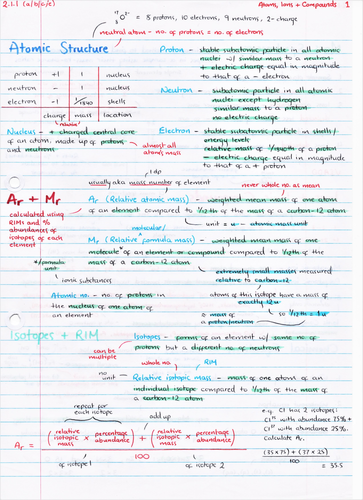 2.1.1 (a/b/c/e)
Atoms, Ions + Compounds 1
17 8 O 2- = 8 protons, 10 electrons, 9 neutrons, 2- charge
neutral atoms - no. of protons = no. of electrons
Atomic Structure
proton +1 1 nucleus
neutron - 1 nucleus
electron -1 shells
charge mass location
relative
Nucleus - + charged central core
of an atom, made up of protons
and neutrons
almost all
atomic mass
Proton - stable subatomic particle in all atomic
nuclei w/ similar mass to a neutron
+ electric charge equal in magnitude
to that of a - electron
Neutron - subatomic particle in all atomic
nuclei except hydrogen
similar mass to a proton
no electric charge
Electron - stable subatomic particle in shells/
energy levels
relative mass of of a proton
- electric charge equal in magnitude
to that of a + proton
1dp
usually aka mass number of element
never whole no. as mean
Ar + Mr
calculated using
RIMs and %
abundances of
isotopes of each
element
Ar (Relative atomic mass) - weighted mean mass of one atom
of an element compared to 1/12th of the mass of a carbon-12 atom
molecular/
unit = u - atomic mass unit
Mr (Relative formula mass) - weighted mean mass of one
molecule* of an element or compound compared to 1/12th of the
mass of a carbon-12 atom
*/formula
unit
ionic substances
extremely small masses measured
relative to carbon-12
Atomic no. - no. of protons in
the nucleus of one atom of
an element
atoms of this isotope have a mass of
exactly 12u
so mass of
a proton/neutron
so 1/12th = 1u
Isotopes + RIM
Isotopes - forms of an element w/ same no. of
protons but a different no. of neutrons
can be
multiple
whole no.
RIM
no
unit
Relative isotopic mass - mass of one atom of an
individual isotope compared to 1/12th of the mass of
a carbon-12 atom
repeat for
each isotope
add up
Ar = (relative isotopic mass × percentage abundance) + (relative isotopic mass × percentage abundance)
100
of isotope 1
of isotope 2
e.g. Cl has 2 isotopes:
Cl35 with abundance 75% +
Cl37 with abundance 25%.
Calculate Ar.
(35×75) + (37×25)
100
= 35.5